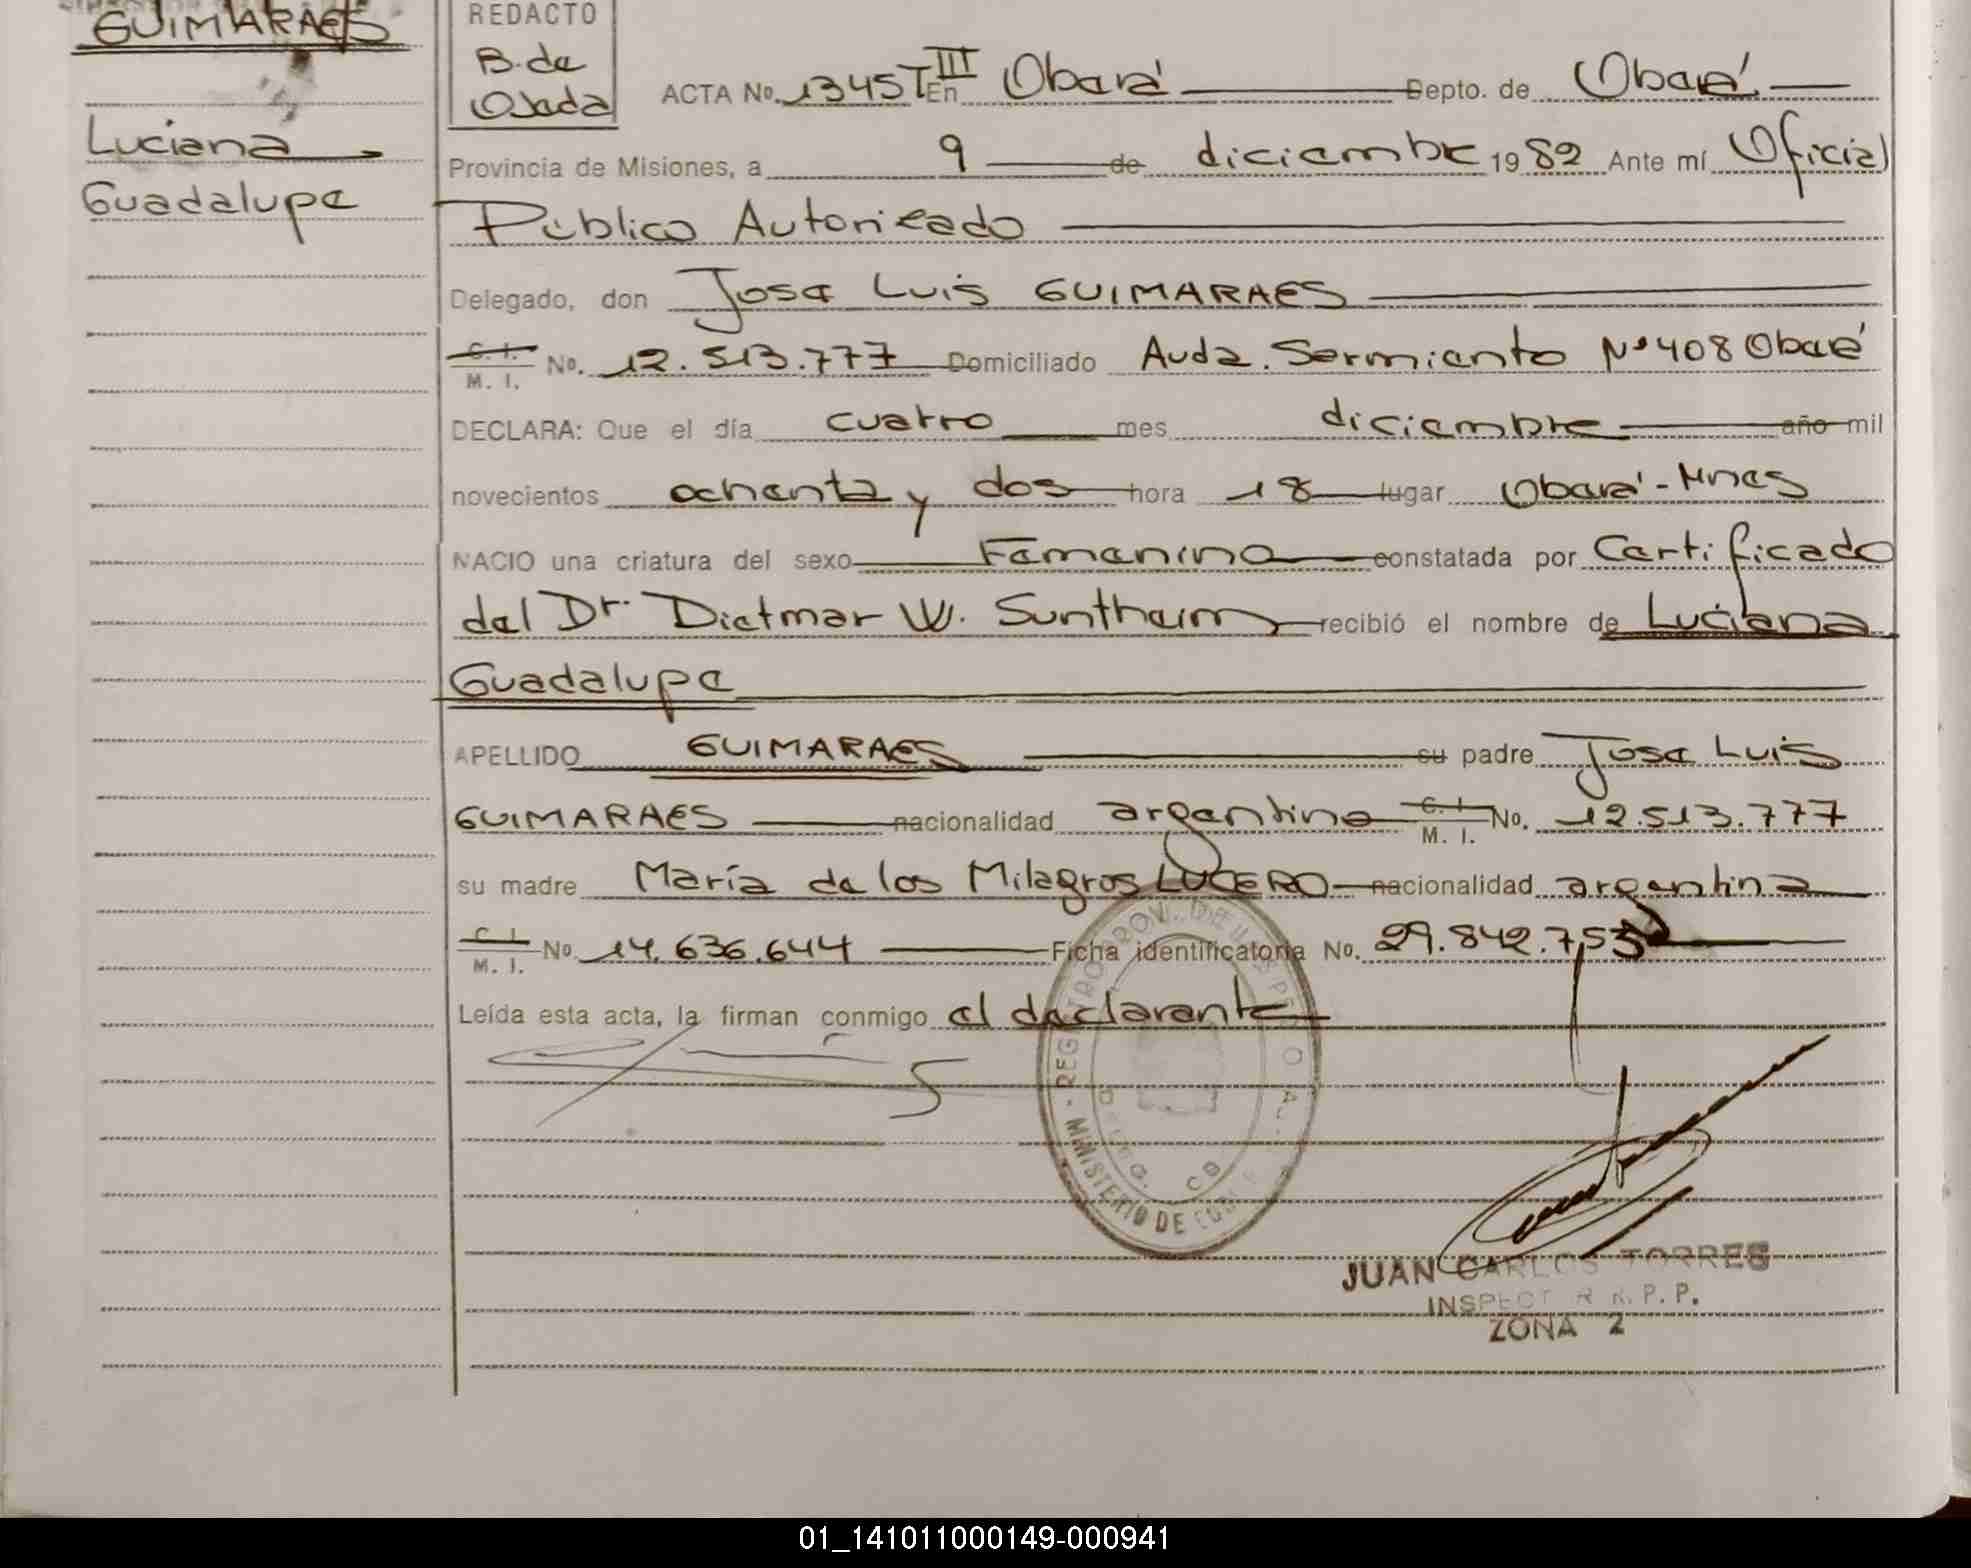 GUIMARAES
Luciana
Guadalupe
REDACTO
B. de
Ojeda
ACTA No. 1345 T III En Oberá Depto. de Oberá
Provincia de Misiones, a 9 de diciembre 1982 Ante mí Oficial
Público Autorizado
Delegado, don José Luis GUIMARAES
C. I. M. I. No. 12.513.777 Domiciliado Avda. Sarmiento Nº 408 Oberá
DECLARA: Que el día cuatro mes diciembre año mil
novecientos ochenta y dos hora 18 lugar Oberá - Mnes
NACIO una criatura del sexo Femenino constatada por Certificado
del Dr. Dietmar W. Suntheim recibió el nombre de Luciana
Guadalupe
APELLIDO GUIMARAES su padre Jose Luis
GUIMARAES nacionalidad argentino C. I. M. I. No. 12.513.777
su madre María de los Milagros LUCERO nacionalidad argentina
C. I. M. I. No. 14.636.644 Ficha identificatoria No. 29.842.753
Leída esta acta, la firman conmigo el declarante
REGISTRO PROV. DE LAS PERSONAS
MINISTERIO DE GOBIERNO
JUAN CARLOS TORRES
INSPECTOR R. P. P.
ZONA 2
01_141011000149-000941